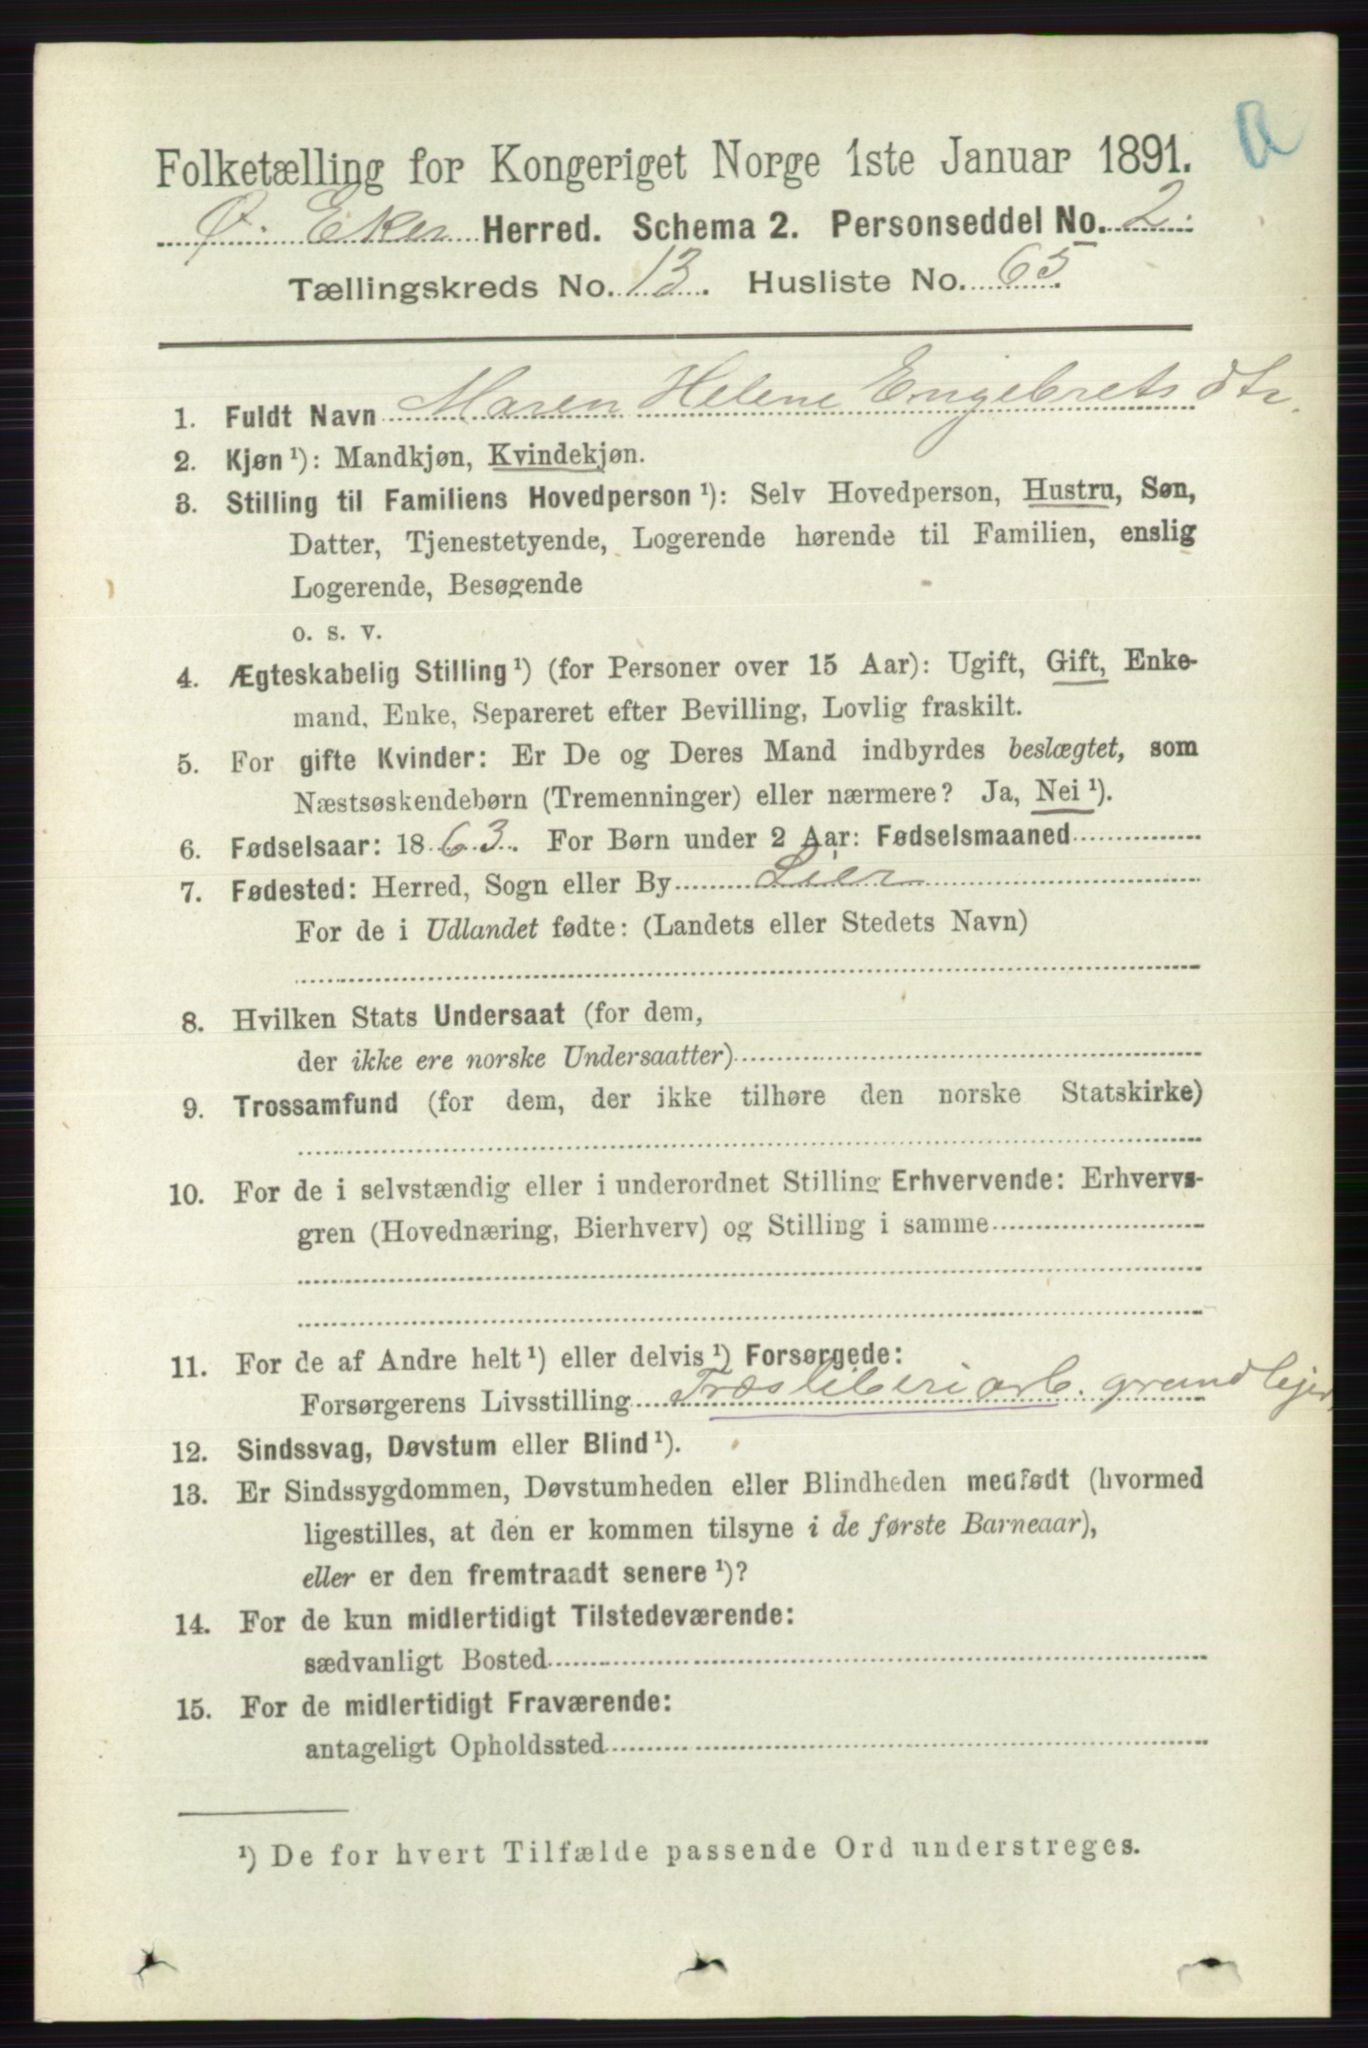 a
Folketælling for Kongeriget Norge 1ste Januar 1891.
Ø. Eker Herred. Schema 2. Personseddel No. 2.
Tællingskreds No. 13. Husliste No. 65.
1. Fuldt Navn Maren Helene Engebretsdtr.
2. Kjøn ¹): Mandkjøn, Kvindekjøn.
3. Stilling til Familiens Hovedperson ¹): Selv Hovedperson, Hustru, Søn,
Datter, Tjenestetyende, Logerende hørende til Familien, enslig
Logerende, Besøgende
o. s. v.
4. Ægteskabelig Stilling ¹) (for Personer over 15 Aar): Ugift, Gift, Enke-
mand, Enke, Separeret efter Bevilling, Lovlig fraskilt.
5. For gifte Kvinder: Er De og Deres Mand indbyrdes beslægtet, som
Næstsøskendebørn (Tremenninger) eller nærmere? Ja, Nei ¹).
6. Fødselsaar: 1863. For Børn under 2 Aar: Fødselsmaaned
7. Fødested: Herred, Sogn eller By Lier
For de i Udlandet fødte: (Landets eller Stedets Navn)
8. Hvilken Stats Undersaat (for dem,
der ikke ere norske Undersaatter)
9. Trossamfund (for dem, der ikke tilhøre den norske Statskirke)
10. For de i selvstændig eller i underordnet Stilling Erhvervende: Erhvervs-
gren (Hovednæring, Bierhverv) og Stilling i samme
11. For de af Andre helt ¹) eller delvis ¹) Forsørgede:
Forsørgerens Livsstilling Træsliberiarb. grundlejer,
12. Sindssvag, Døvstum eller Blind ¹).
13. Er Sindssygdommen, Døvstumheden eller Blindheden medfødt (hvormed
ligestilles, at den er kommen tilsyne i de første Barneaar),
eller er den fremtraadt senere ¹)?
14. For de kun midlertidigt Tilstedeværende:
sædvanligt Bosted
15. For de midlertidigt Fraværende:
antageligt Opholdssted
¹) De for hvert Tilfælde passende Ord understreges.